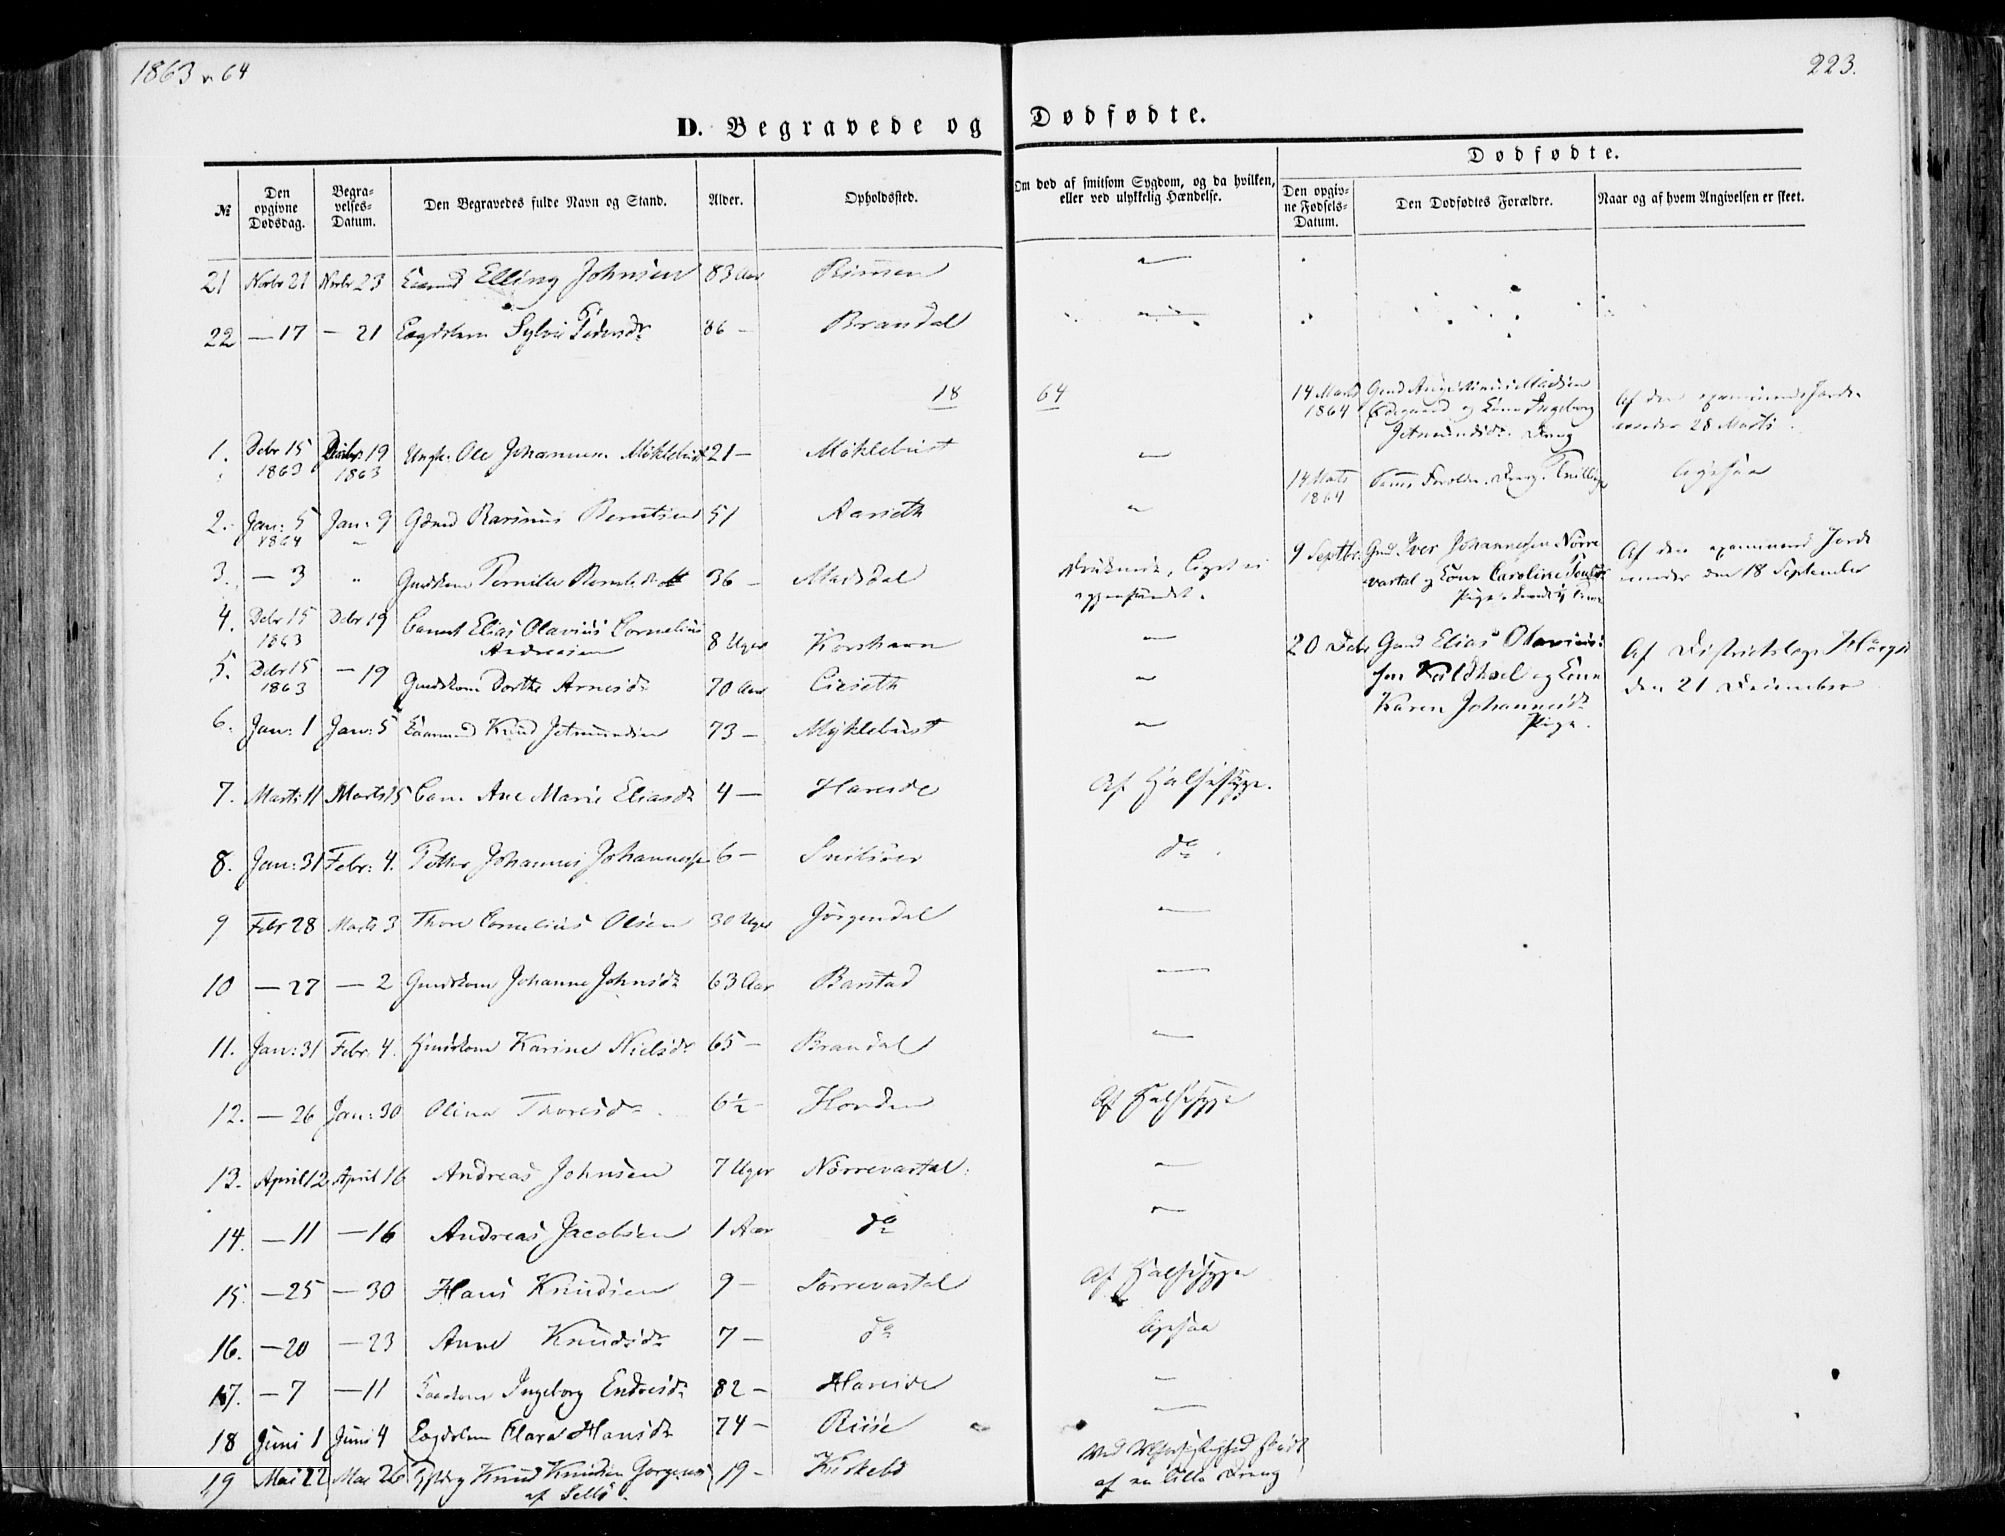 1863 & 64
223.
D. Begravede og Dødfødte.
№
Den opgivne Dødsdag.
Begravelses-Datum.
Den Begravedes fulde Navn og Stand.
Alder.
Opholdssted.
Om død af smitsom Sygdom, og da hvilken, eller ved ulykkelig Hændelse.
Dødfødte.
Den opgivne Fødsels-Datum.
Den Dødfødtes Forældre.
Naar og af hvem Angivelsen er skeet.
21 Novbr 21 Novbr 23 Elling Johnsen 83 Aar Rimmen —
22 — 17 — 21 Sylvi Pedersdr 86 — Brandal —
18 64
14 Marts 1864 Gmd Madsen
og Kone Ingeborg
Jetmundsdr. Dreng
Af den examinerede Jorde-
moder 28 Marts.
1. Debr 15 1863 Decbr. 19 1863 Ungk. Ole Johannesen Möklebust 21 — Möklebust —
14 Marts 1864 Samme Forældre. Dreng. Tvilling
ligesaa
2. Jan: 5 1864 Jan: 9 Gmd Rasmus Berntsen 51 Aarseth —
3. — 3 " Gmdskone Pernille 36 — Madsdal Druknede, Liget ei
igjenfundet.
9 Septbr. Gmd. Iver Johannesen Nörre
vartal og Kone Caroline
Af den examinerede Jorde
moder den 18 September
4. Debr 15 1863 Debr 19 Barnet Elias Olavius Cornelius
Andreasen 8 Uger Korshavn —
5. Debr 15 1863 — 19 Gmdskone Dorthe Arnesdr 70 Aar Liaseth —
20 Debr Gmd Elias Olavius-
sen Kaldhol og Kone
Karen Johannesdr
Pige.
Af Districtslæge
den 21 December
6. Jan: 1 Jan: 5 Knud Jetmundsen 73 — Myklebust —
7. Marts 11 Marts 15 Barn Ane Marie Eliasdr 4 — Hareide Af Halssyge.
8. Jan: 31 Febr: 4. Petter Johannes Johannesen 6 — Snibsör do.
9 Febr 28 Marts 3 Thore Cornelius Olsen 30 Uger Jörgendal —
10 — 27 — 2 Gmdskone Johanne Johnsdr 63 Aar Barstad —
11. Jan: 31 Febr. 4. Karine Nielsdr 65 — Brandal —
12. — 26 Jan: 30 Olina Thoresdr 6½ — Horden Af Halssyge
13. April 12 April 16 Andreas Johnsen 7 Uger Nörrevartal. —
14. — 11 — 16 Andreas Jacobsen 1 Aar do —
15. — 25 — 30 Hans Knudsen 9 — Sörrevartal Af Halssyge
16. — 20 — 23 Anne Knudsdr 7 — do ligesaa
17. — 7 — 11 Ingeborg Endresdr 82 — Hareide —
18 Juni 1 Juni 4 Clara Hansdr 74 — Riise —
19 Mai 22 Mai 26 Knud Knudsen 19 — Kiskebö Ved Uforsigtighed skudt
af en lille Dreng